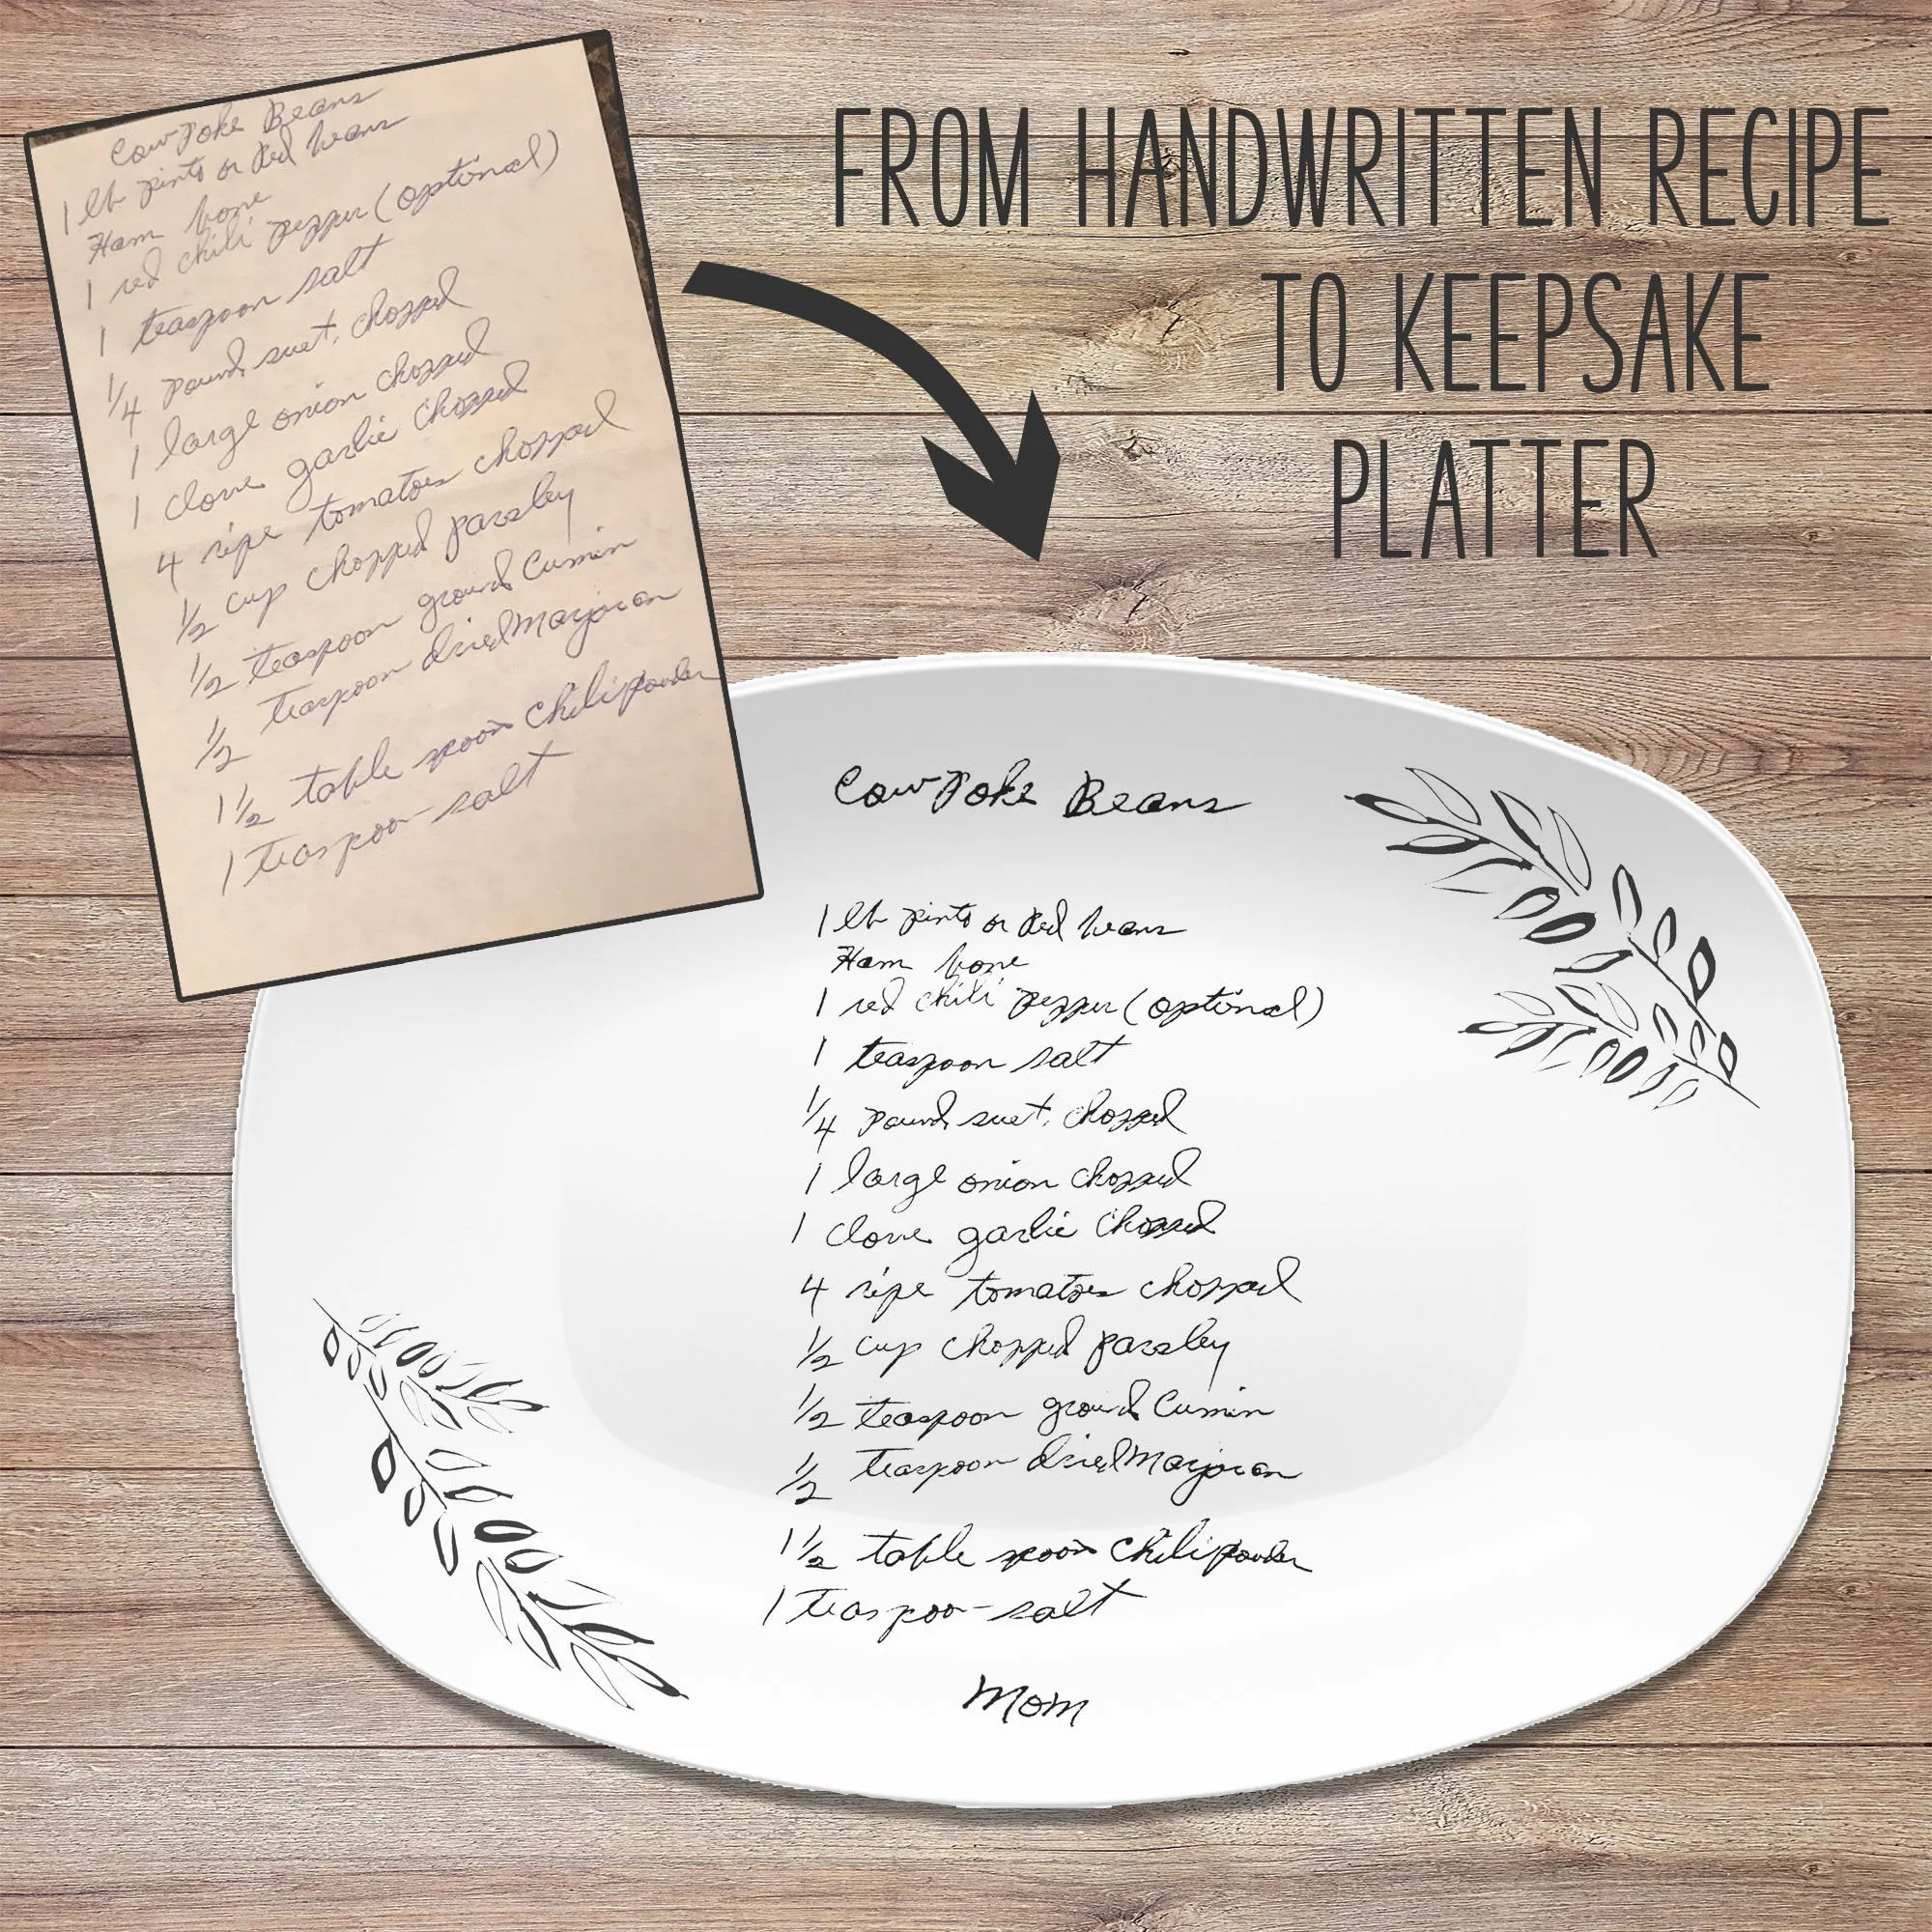 CowPoke Beans
1 lb pinto or Red beans
Ham bone
1 red chili pepper (optinal)
1 teaspoon salt
1/4 pound suet, chopped
1 large onion chopped
1 clove garlic chopped
4 ripe tomatoes chopped
1/2 cup chopped parsley
1/2 teaspoon ground Cumin
1/2 teaspoon dried Marjoran
1 1/2 table spoon chili powder
1 teaspoo- salt
FROM HANDWRITTEN RECIPE
TO KEEPSAKE
PLATTER
CowPoke Beans
1 lb pinto or Red beans
Ham bone
1 red chili pepper (optinal)
1 teaspoon salt
1/4 pound suet, chopped
1 large onion chopped
1 clove garlic chopped
4 ripe tomatoes chopped
1/2 cup chopped parsley
1/2 teaspoon ground Cumin
1/2 teaspoon dried Marjoran
1 1/2 table spoon chili powder
1 teaspoo- salt
Mom